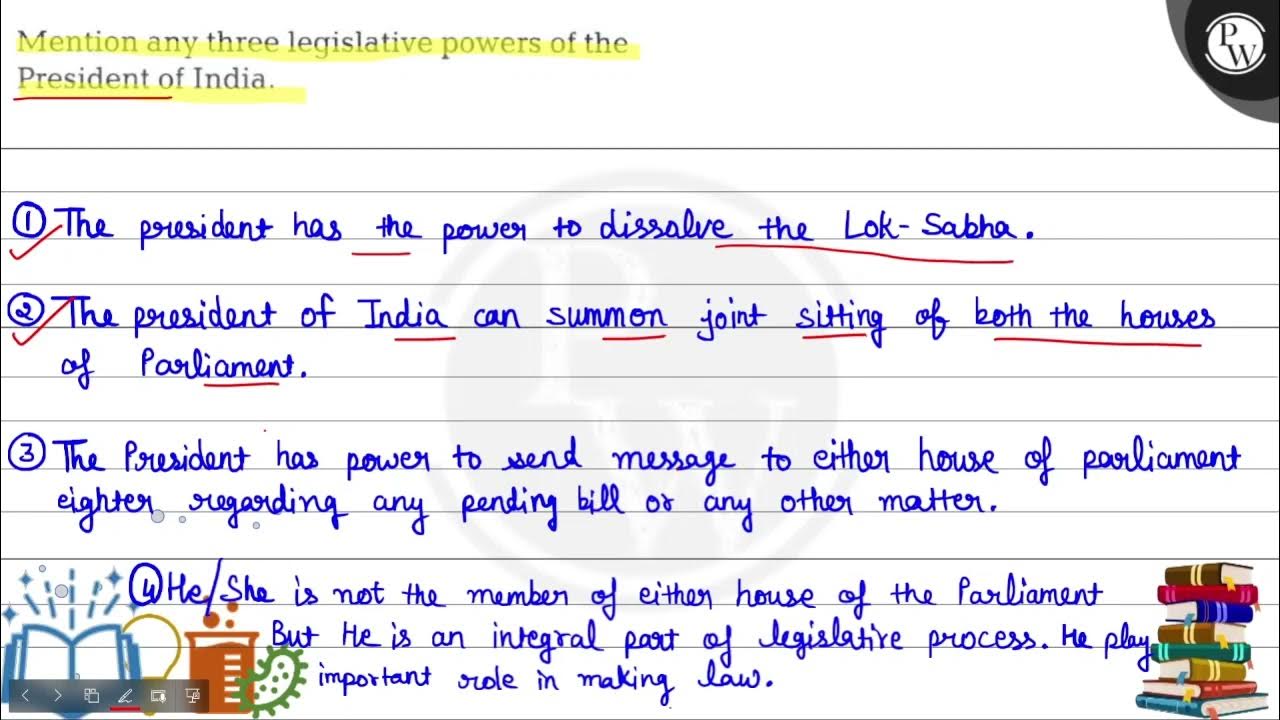 Mention any three legislative powers of the
President of India.
PW
① The president has the power to dissalve the Lok-Sabha.
② The president of India can summon joint sitting of both the houses
of Parliament.
③ The President has power to send message to either house of parliament
eighter regarding any pending bill or any other matter.
④ He/She is not the member of either house of the Parliament
But He is an integral part of legislative process. He play
important role in making law.